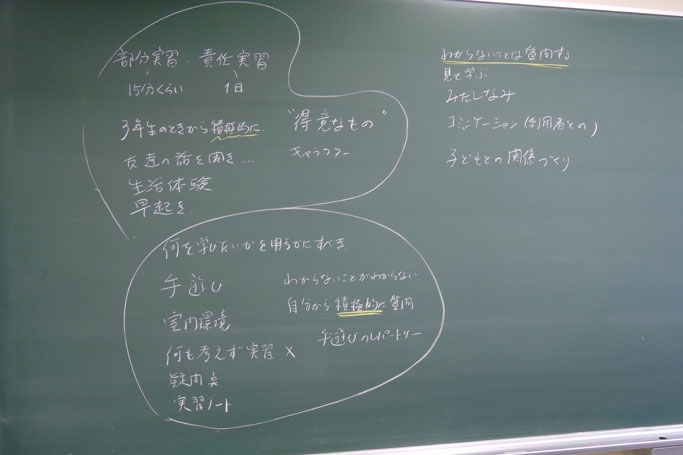 部分実習・責任実習
15分くらい 1日
3年生のときから積極的に
友達の話を聞き....
生活体験
早起き
"得意なもの"
キャラクター
何を学びたいかを明らかにすべき
手遊び
室内環境
何も考えず実習 ×
疑問点
実習ノート
わからないことがわからない
自分から積極的に質問
手遊びのレパートリー
わからないことは質問する
見て学ぶ
みだしなみ
コミニケーション(利用者との)
子どもとの関係づくり